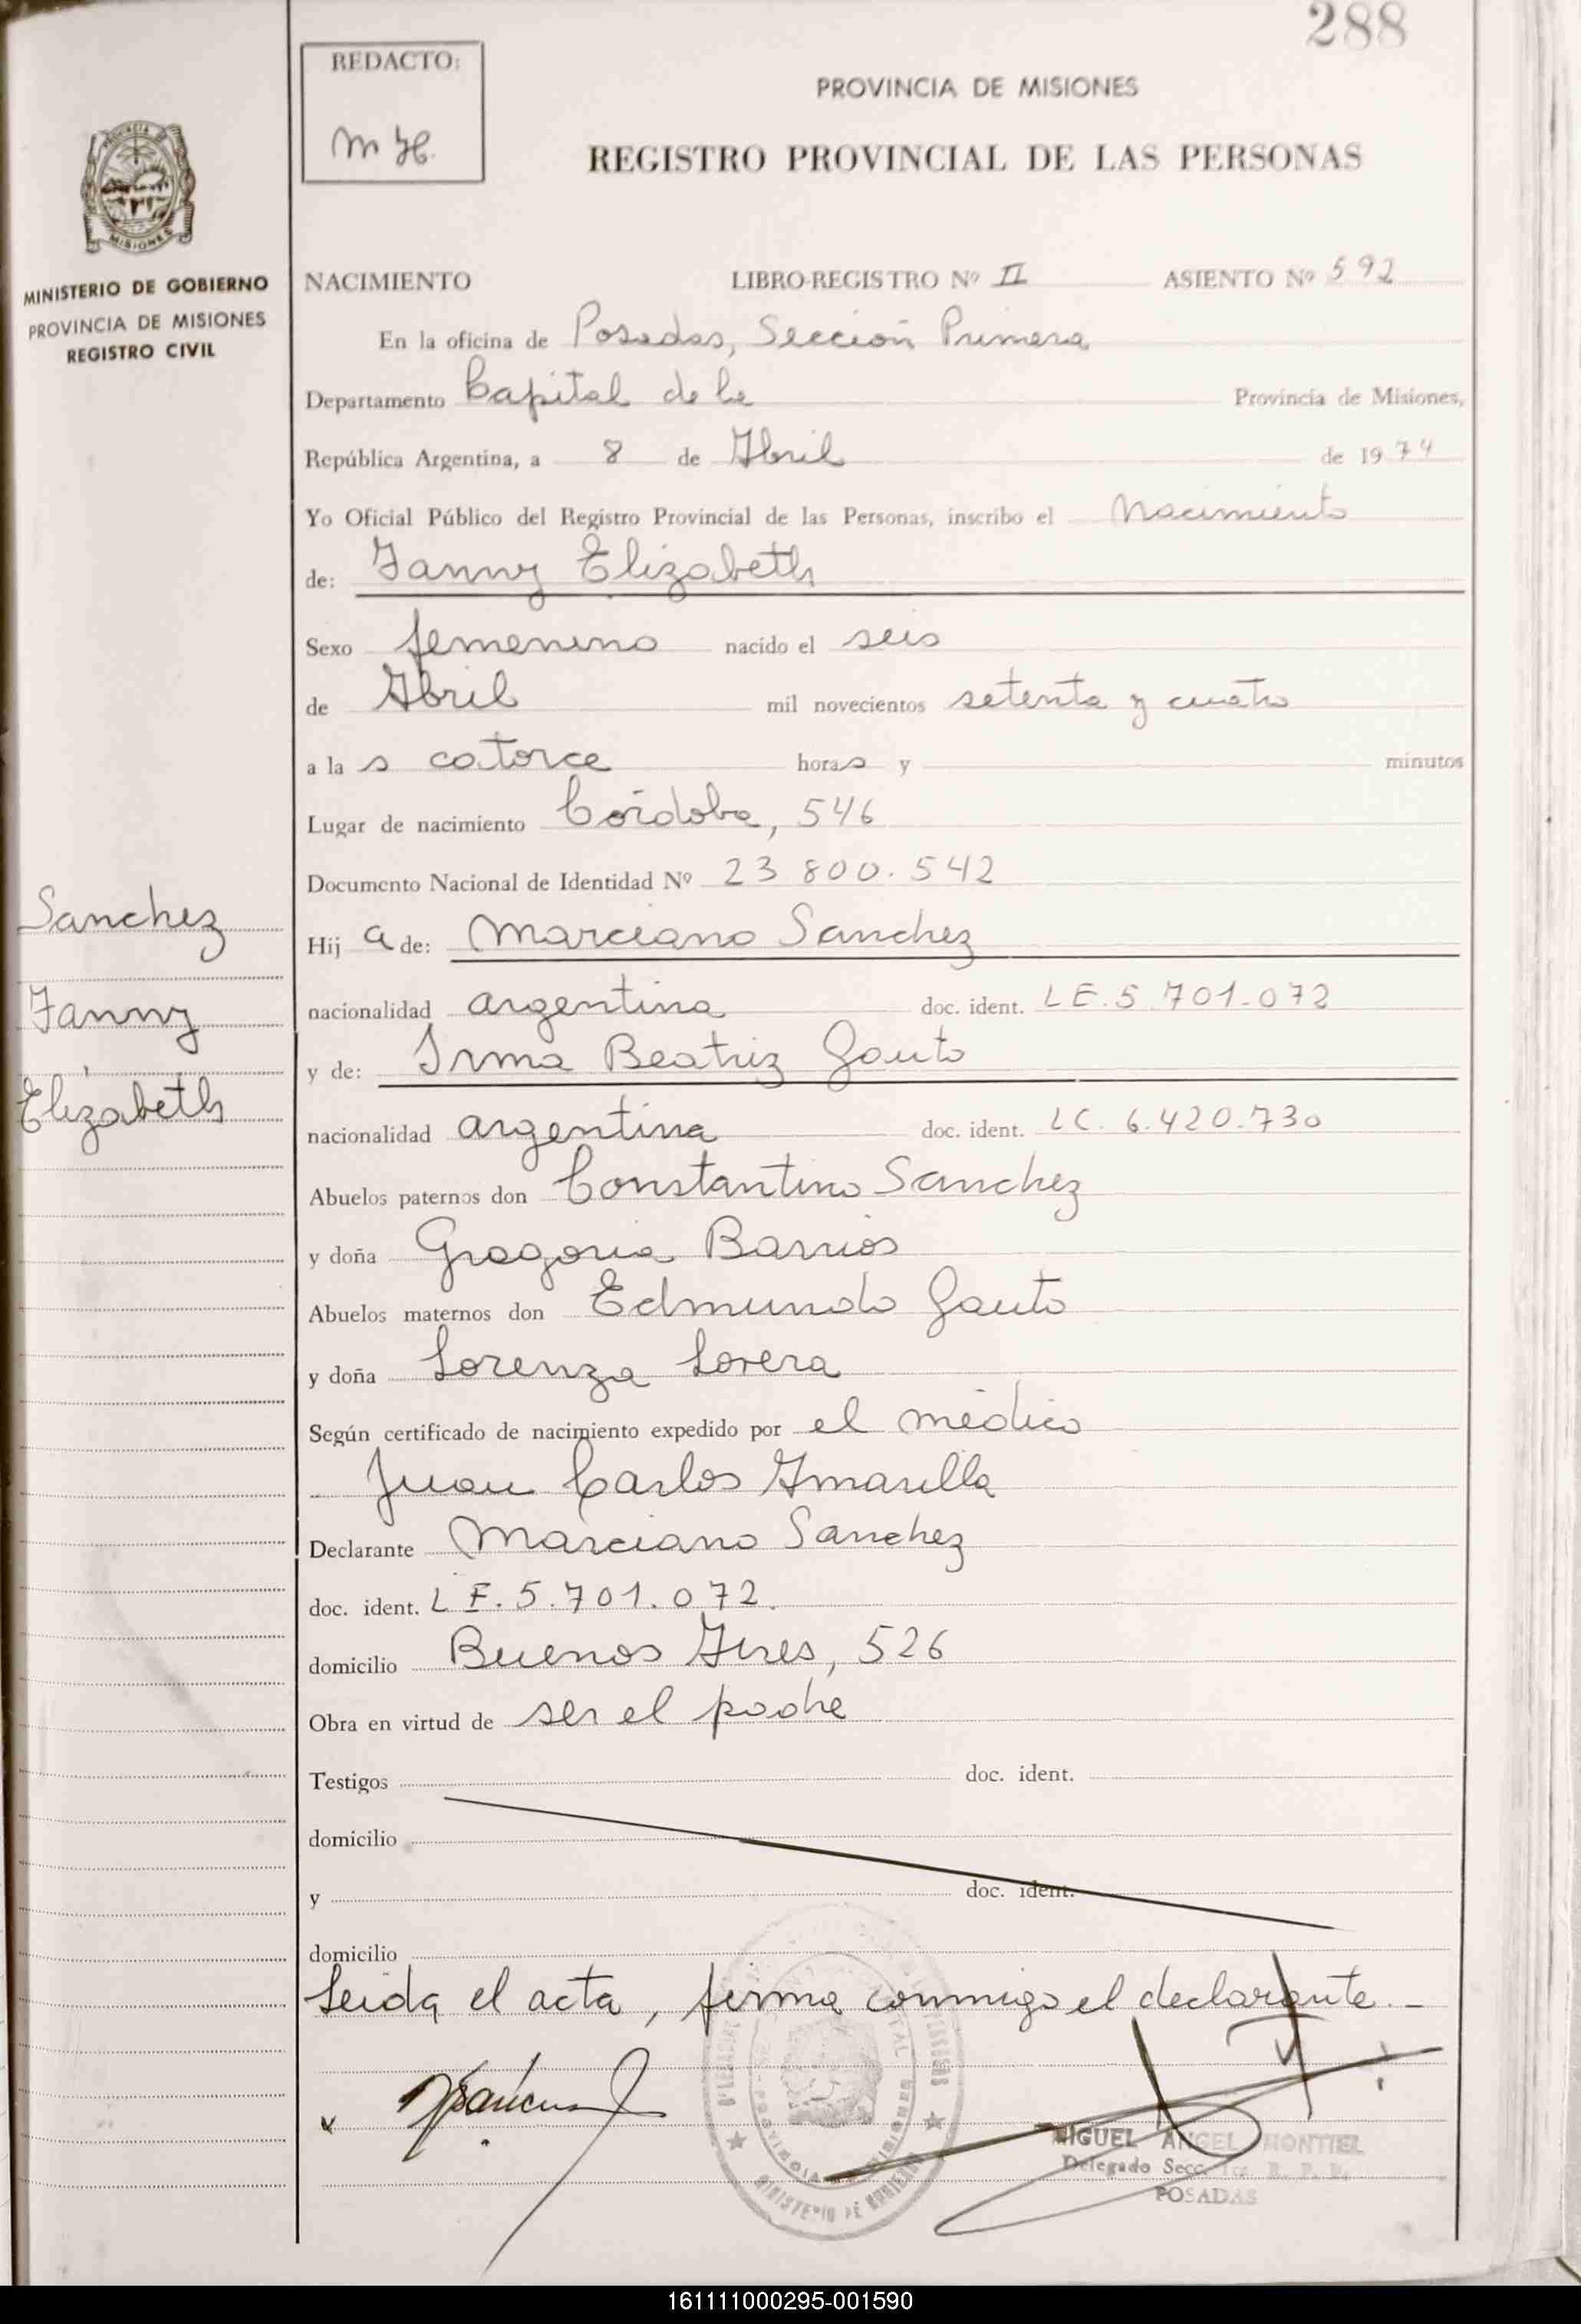 288
REDACTO:
M H.
PROVINCIA DE MISIONES
REGISTRO PROVINCIAL DE LAS PERSONAS
PROVINCIA DE
MISIONES
MINISTERIO DE GOBIERNO
PROVINCIA DE MISIONES
REGISTRO CIVIL
NACIMIENTO LIBRO-REGISTRO Nº II ASIENTO Nº 592
En la oficina de Posadas, Sección Primera
Departamento Capital de la Provincia de Misiones,
República Argentina, a 8 de Abril de 1974
Yo Oficial Público del Registro Provincial de las Personas, inscribo el Nacimiento
de: Fanny Elizabeth
Sexo femenino nacido el seis
de Abril mil novecientos setenta y cuatro
a la s catorce horas y minutos
Lugar de nacimiento Córdoba, 546
Documento Nacional de Identidad Nº 23.800.542
Sanchez
Fanny
Elizabeth
Hij a de: Marciano Sanchez
nacionalidad argentina doc. ident. L E. 5.701.072
y de: Irma Beatriz Gauto
nacionalidad argentina doc. ident. L C. 6.420.730
Abuelos paternos don Constantino Sanchez
y doña Gregoria Barrios
Abuelos maternos don Edmundo Gauto
y doña Lorenza Lovera
Según certificado de nacimiento expedido por el médico
Juan Carlos Amarilla
Declarante Marciano Sanchez
doc. ident. L E. 5.701.072.
domicilio Buenos Aires, 526
Obra en virtud de ser el padre
Testigos doc. ident.
domicilio
y doc. ident.
domicilio
Leida el acta, firma conmigo el declarante.-
MIGUEL ANGEL MONTIEL
Delegado Secc. 1ra. R. P. P.
POSADAS
MINISTERIO DE GOBIERNO
161111000295-001590